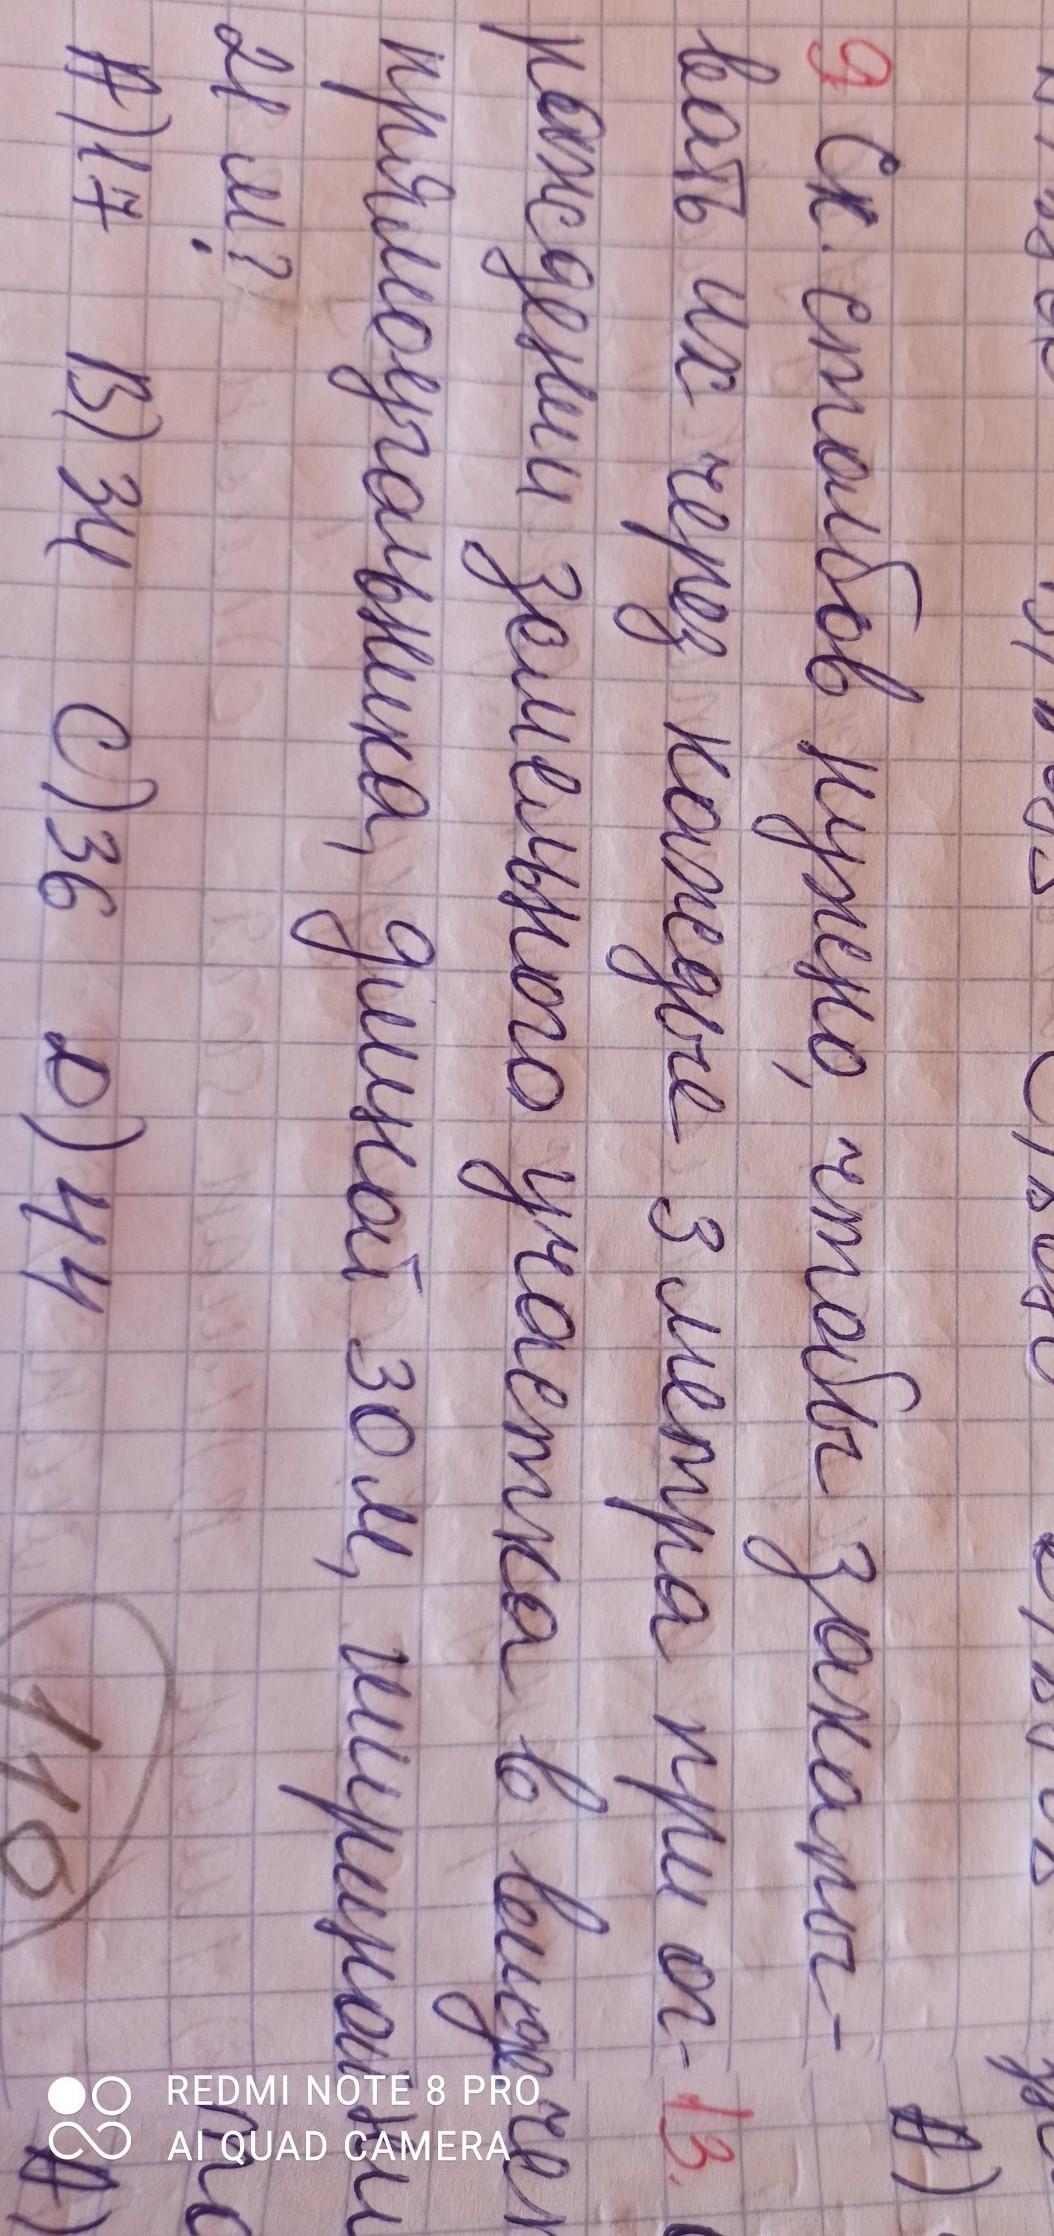 9 Ск. столбов нужно, чтобы закапы-
вать их через каждые 3 метра при ог-
раждении земельного участка в виде
прямоугольника, длиной 30м, шириной
21 м?
А) 17 В) 34 С) 36 D) 44
110
13.
А)
А)
REDMI NOTE 8 PRO
AI QUAD CAMERA